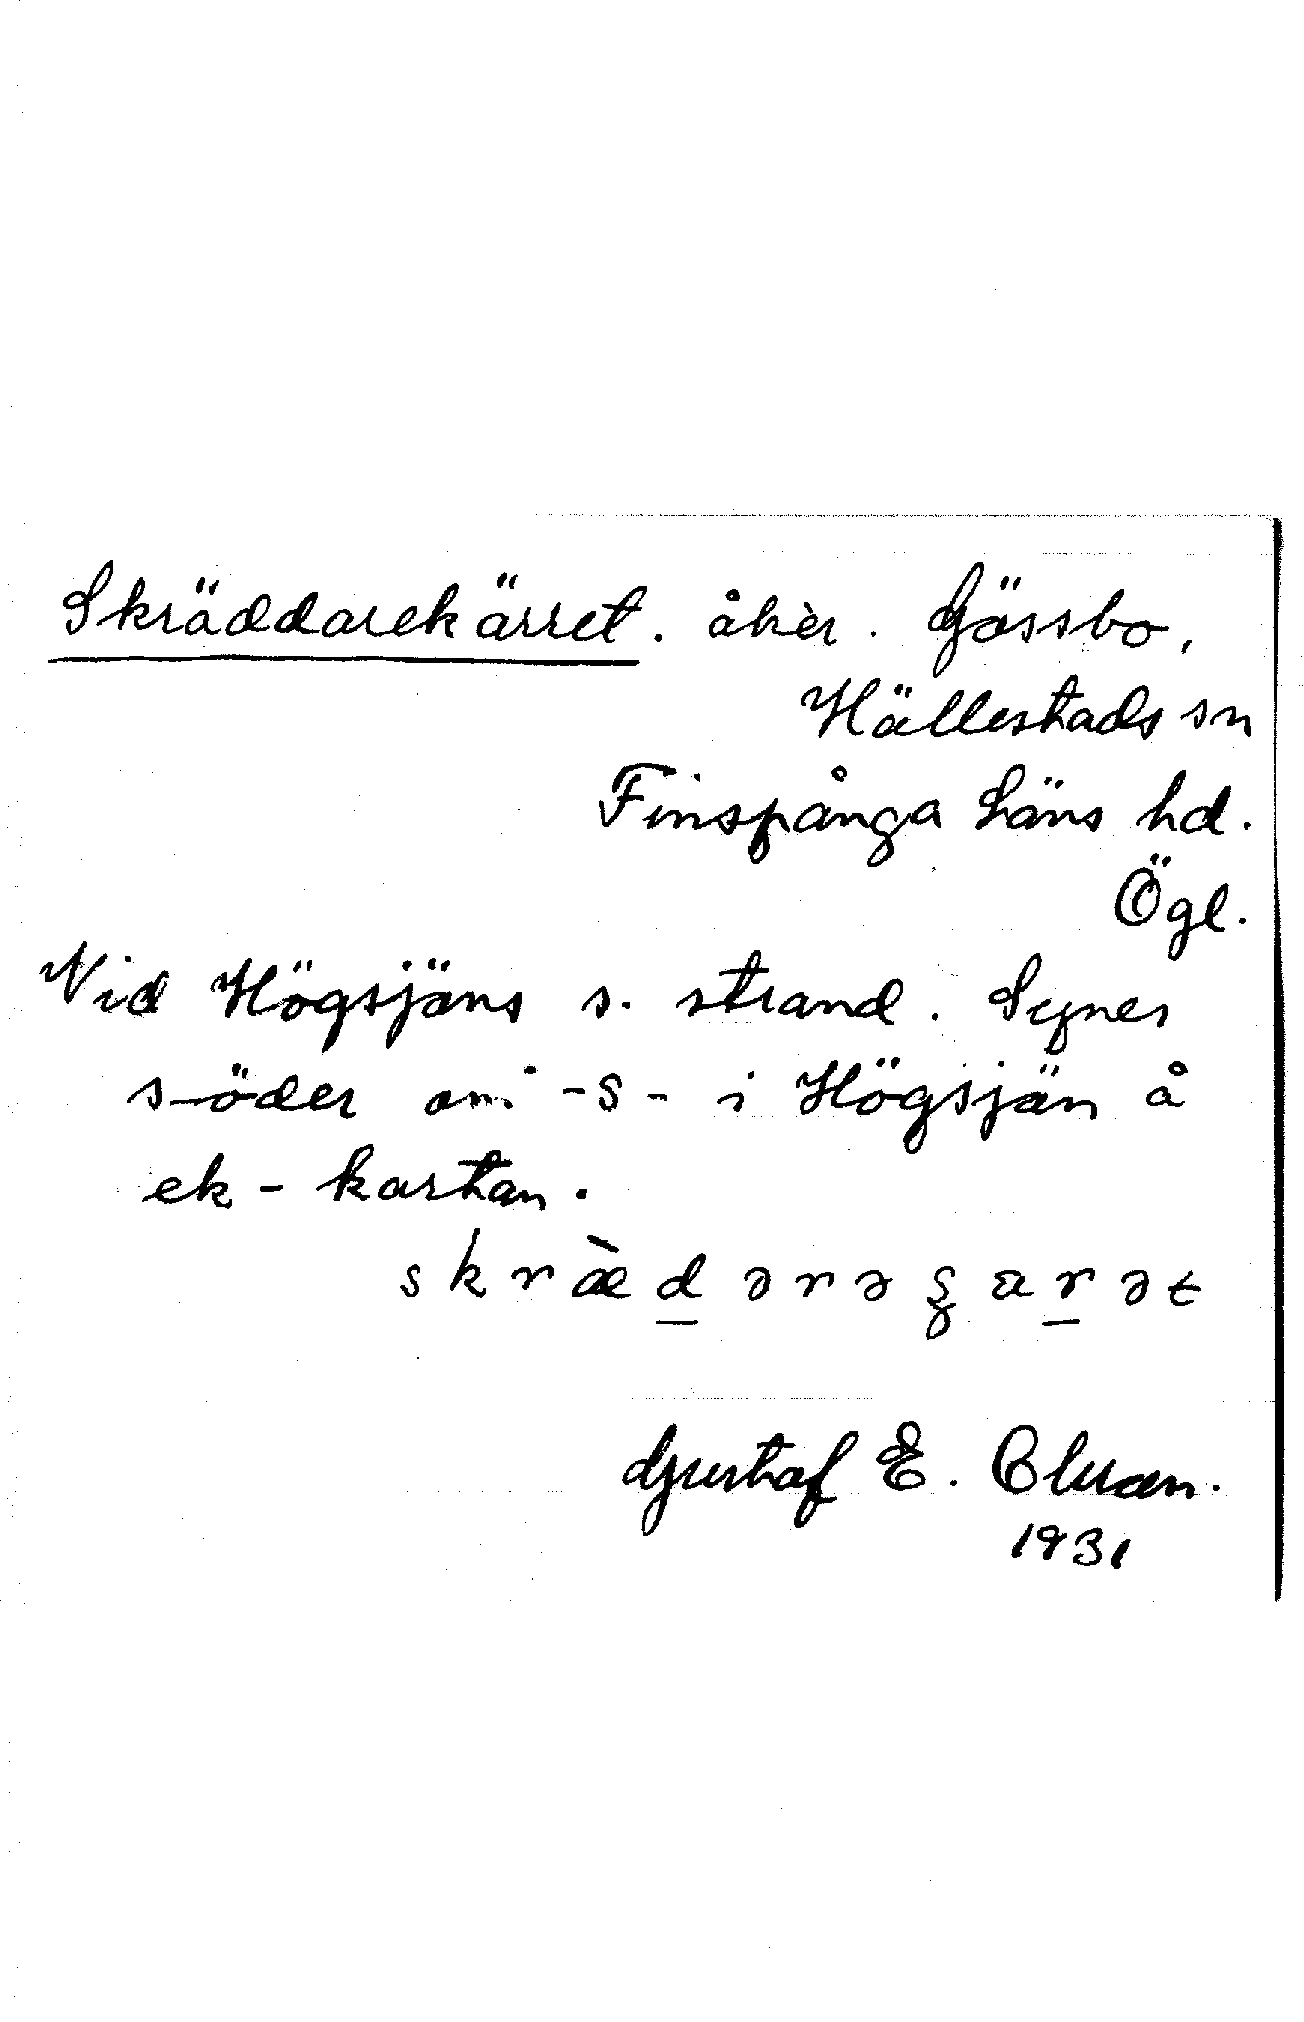 Skräddarekärret. åker. Gässbo,
Hällestads sn
Finspånga Läns hd.
Ögl.
Vid Högsjöns s. strand. Synes
söder om -s- i Högsjön å
ek-kartan.
skræ̀dərəʂarət
Gustaf E.
1931